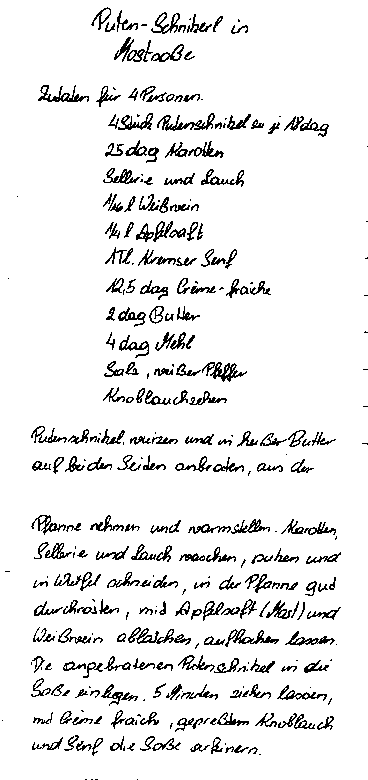 Puten-Schnitzerl in
Mostsoße
Zutaten für 4 Personen.
4 Stück Putenschnitzel zu je 18 dag
25 dag Karotten
Sellerie und Lauch
1/16 l Weißwein
1/4 l Apfelsaft
1 Tl. Kremser Senf
12,5 dag Crème-fraîche
2 dag Butter
4 dag Mehl
Salz, weißer Pfeffer
Knoblauchzehen
Putenschnitzel, würzen und in heißer Butter
auf beiden Seiten anbraten, aus der
Pfanne nehmen und warmstellen. Karotten,
Sellerie und Lauch waschen, putzen und
in Würfel schneiden, in der Pfanne gut
durchrösten, mit Apfelsaft (Most) und
Weißwein ablöschen, aufkochen lassen.
Die angebratenen Putenschnitzel in die
Soße einlegen. 5 Minuten ziehen lassen,
mit Crème fraîche, gepreßtem Knoblauch
und Senf die Soße verfeinern.